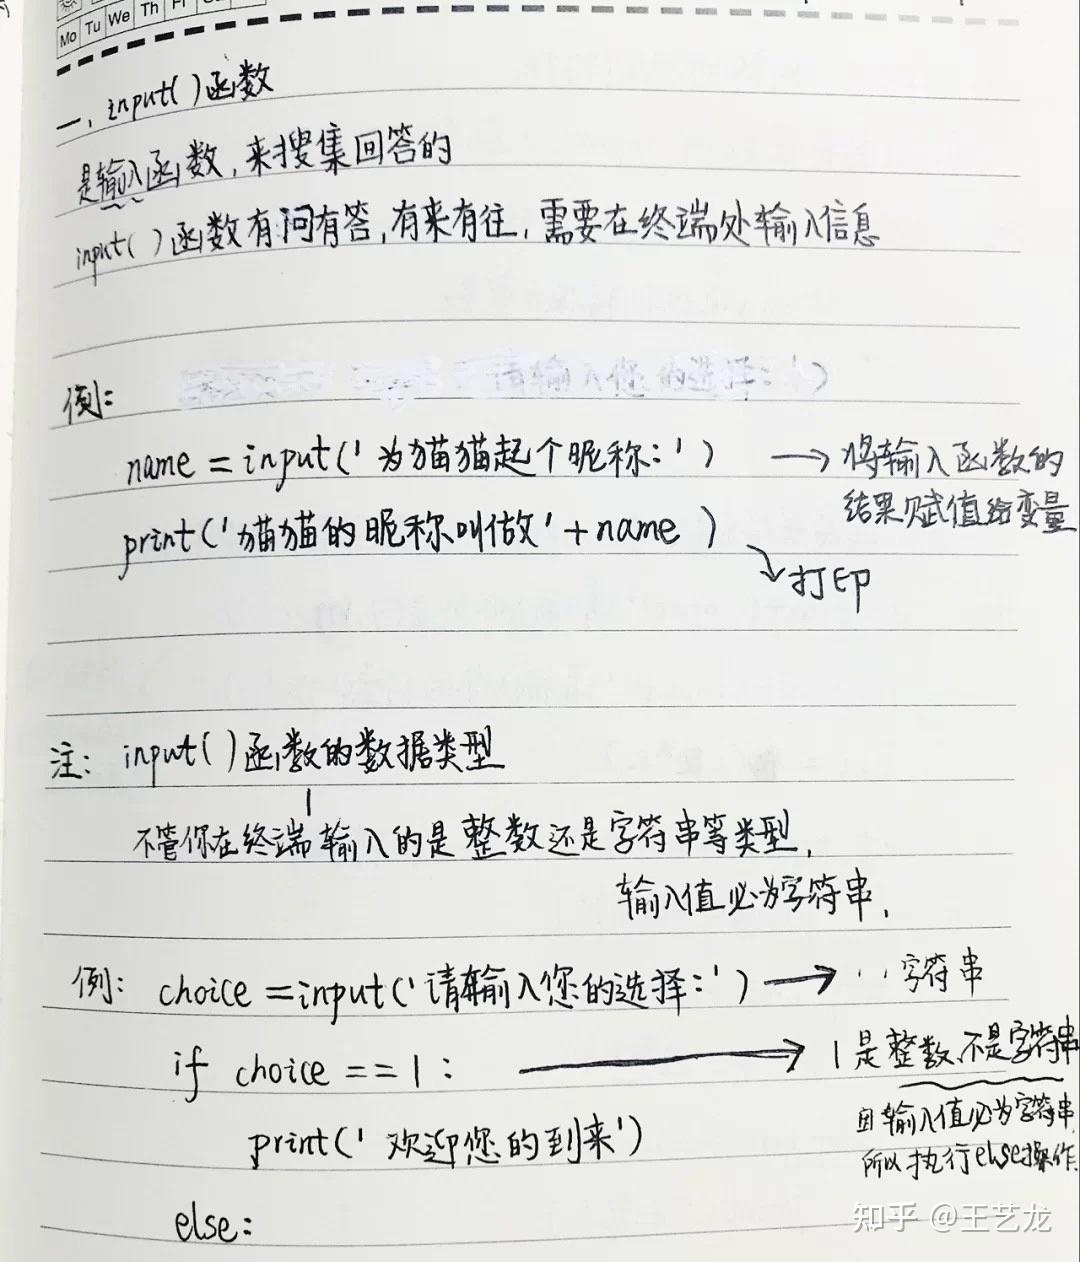 Mo Tu We Th Fr
一, input()函数
是输入函数,来搜集回答的
input()函数有问有答,有来有往,需要在终端处输入信息
请输入您的选择:')
例:
name = input(' 为猫猫起个昵称:') → 将输入函数的
结果赋值给变量
print('猫猫的昵称叫做'+name)
打印
注: input()函数的数据类型
不管你在终端输入的是整数还是字符串等类型,
输入值必为字符串,
例: choice =input('请输入您的选择:') → ..字符串
if choice ==1: → 1是整数,不是字符串
print(' 欢迎您的到来')
且输入值必为字符串,
所以执行else操作.
else:
知乎 @王艺龙